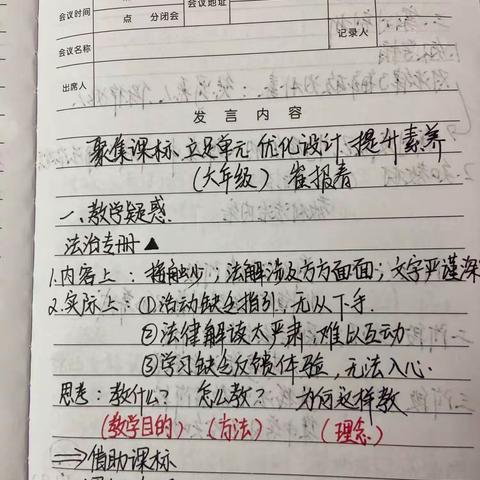 会议时间
点 分闭会
会议地址
会议名称
记录人
出席人
发言内容
聚集课标 立足单元 优化设计 提升素养
(六年级) 崔报春
一、教学疑惑
法治专册▲
1.内容上：接触少；法解涉及方方面面；文字严谨深
2.实际上：①活动缺乏指引，无从下手.
②法律解读太严肃，难以互动
③学习缺乏反馈体验，无法入心.
思考：教什么？ 怎么教？ 为何这样教
(教学目的) (方法) (理念)
⇒借助课标